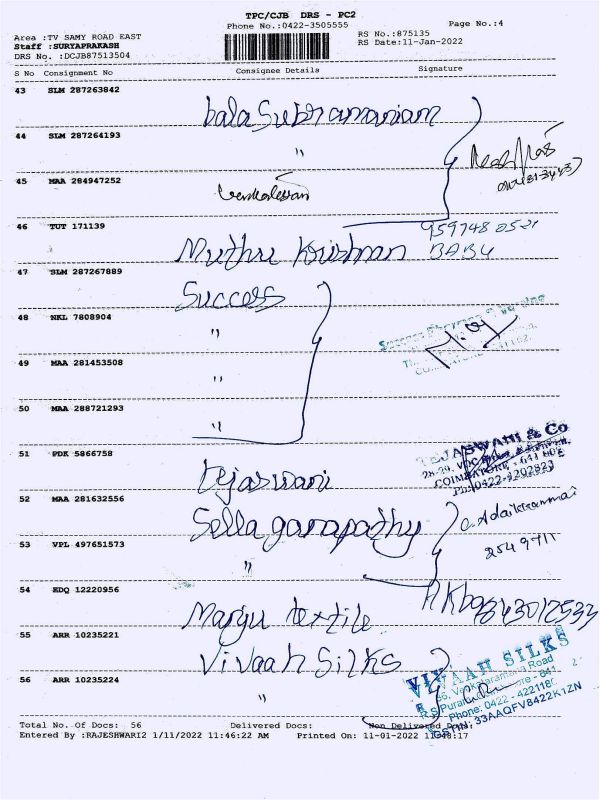 TPC/CJB DRS - PC2
Phone No.:0422-3505555
Page No.:4
Area :TV SAMY ROAD EAST
RS No.:875135
Staff :SURYAPRAKASH
RS Date:11-Jan-2022
DRS No. :DCJB87513504
S No Consignment No Consignee Details Signature
43 SLM 287263842
balasubramaniam
44 SLM 287264193
"
45 MAA 284947252
Venkatesan
46 TUT 171139
959748 0521
Muthu Krishnan BABU
47 SLM 287267889
Success
48 NKL 7808904
"
49 MAA 281453508
"
50 MAA 288721293
"
51 PDK 5866758
TEJASWANI & Co
COIMBATORE - 641 002
Ph:0422-4202823
tejaswani
52 MAA 281632556
Sella ganapathy
53 VPL 497651573
2549711
"
54 EDQ 12220956
Manju textile
55 ARR 10235221
VIVAAH SILKS
Vivaah Silks
56, Venkataramana Road
R S Puram
56 ARR 10235224
"
Phone: 0422 - 4221180
GSTIN: 33AAQFV8422K1ZN
Total No. Of Docs: 56 Delivered Docs: Non Delivered Docs:
Entered By :RAJESHWARI2 1/11/2022 11:46:22 AM Printed On: 11-01-2022 11:48:17